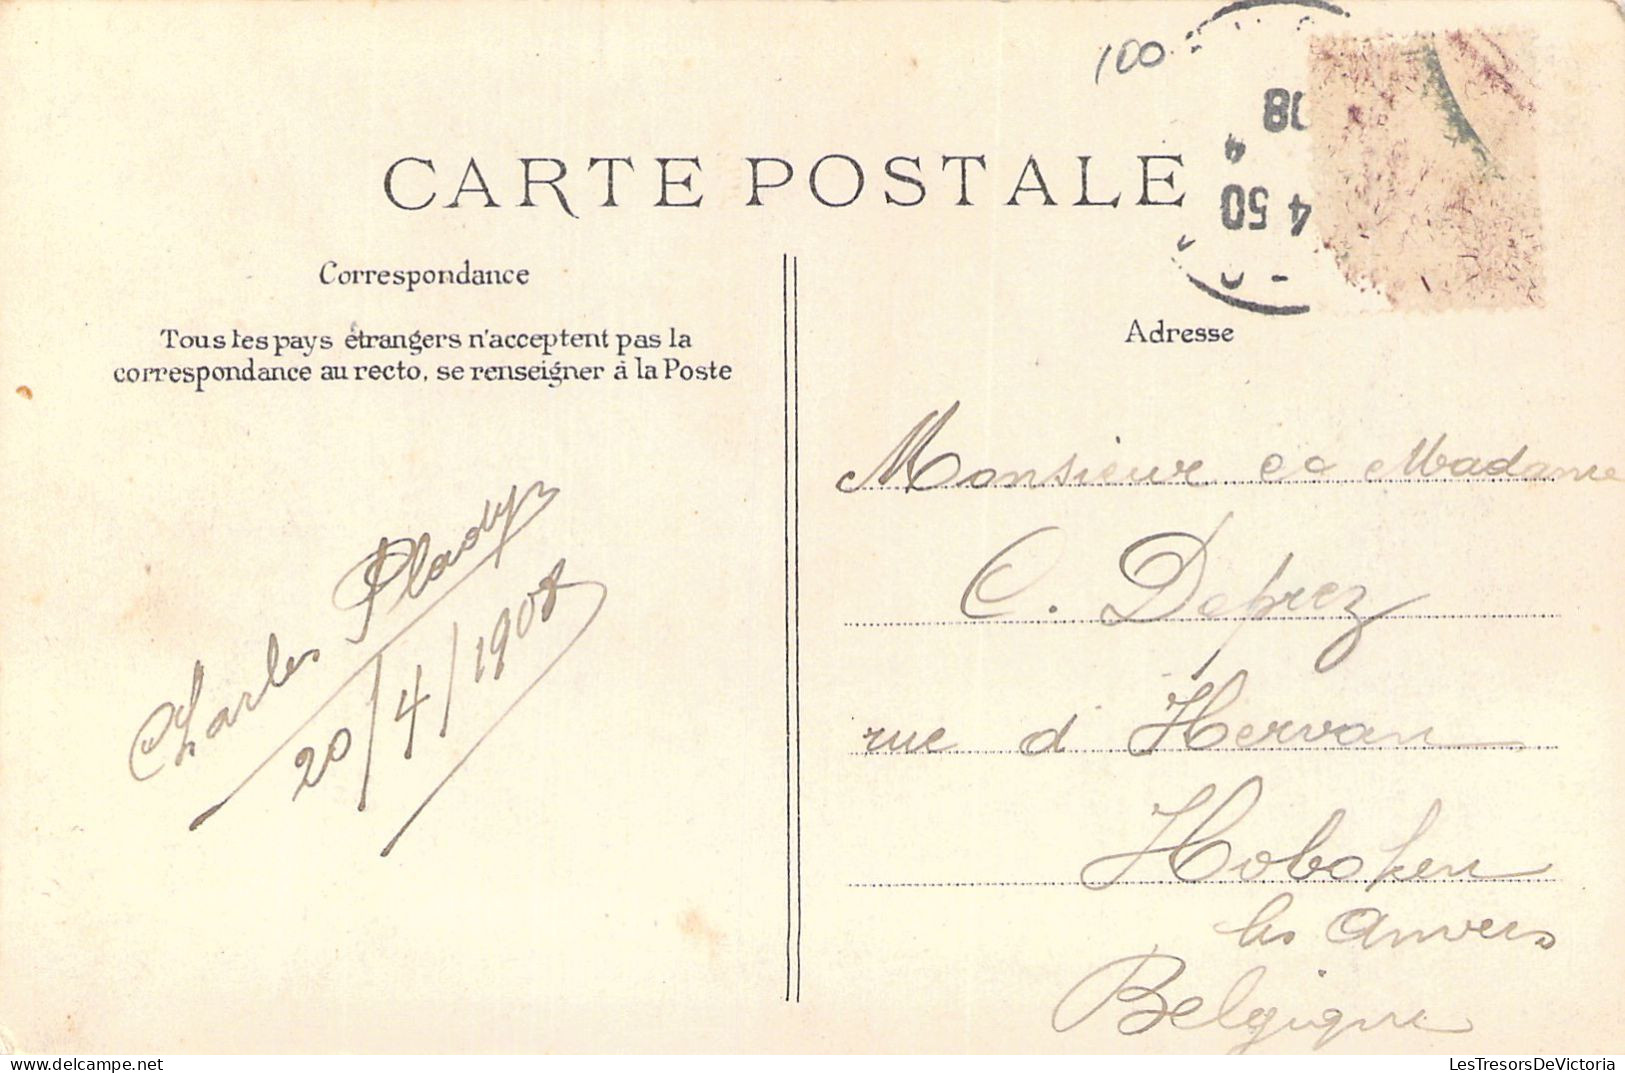 100
08
4
4 50
CARTE POSTALE
Correspondance
Tous les pays étrangers n'acceptent pas la
correspondance au recto, se renseigner à la Poste
Charles
20/4/1908
Adresse
Monsieur et Madame
C. Deprez
rue d' Hervan
Hoboken
les Anvers
Belgique
LesTresorsDeVictoria